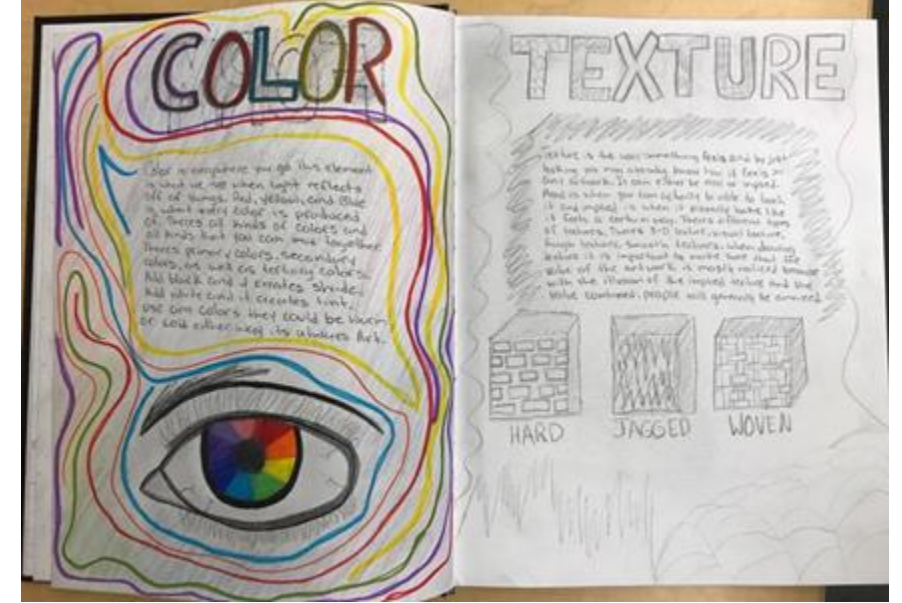 COLOR
Color is everywhere you go this element
is what we see when light reflects
off of things. Red, yellow, and Blue
is what every color is produced
of. Theres all kinds of colors and
all kinds that you can mix together
Theres primary colors, secondary
colors, as well as tertiary colors.
Add black and it creates shade.
Add white and it creates tint.
use com colors they could be warm
or cold either way, its Art.
TEXTURE
Texture is the way something feels and by just
looking you may already know how it feels in
any artwork. It can either be real or implied.
Real is when you can actually be able to touch
it and implied is when it visually looks like
it feels a certain way. Theres different types
of textures. Theres 3-D texture, visual texture,
rough texture, smooth texture. when drawing
texture it is important to make sure that the
value of the artwork is mostly noticed because
with the illusion of the implied texture and the
value combined, people will be amazed.
HARD
JAGGED
WOVEN